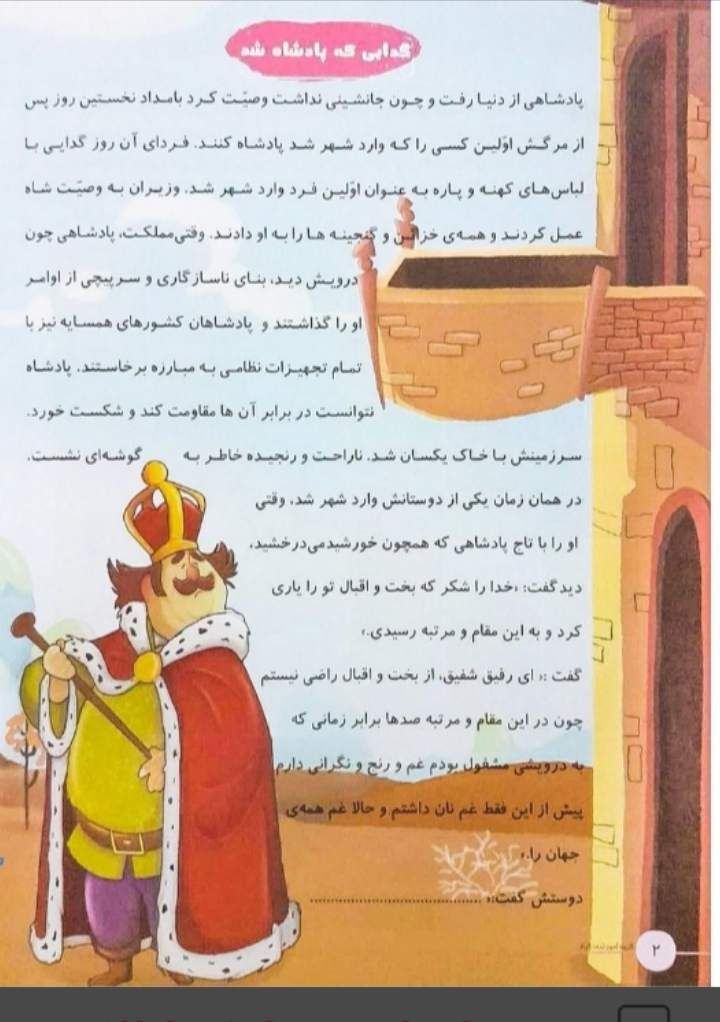 گدایی که پادشاه شد
پادشاهی از دنیا رفت و چون جانشینی نداشت وصیّت کرد بامداد نخستین روز پس
از مرگش اوّلین کسی را که وارد شهر شد پادشاه کنند. فردای آن روز گدایی با
لباس‌های کهنه و پاره به عنوان اوّلین فرد وارد شهر شد. وزیران به وصیّت شاه
عمل کردند و همه‌ی خزائن و گنجینه ها را به او دادند. وقتی مملکت، پادشاهی چون
درویش دید، بنای ناسازگاری و سرپیچی از اوامر
او را گذاشتند و پادشاهان کشورهای همسایه نیز با
تمام تجهیزات نظامی به مبارزه برخاستند. پادشاه
نتوانست در برابر آن ها مقاومت کند و شکست خورد.
سرزمینش با خاک یکسان شد. ناراحت و رنجیده خاطر به گوشه‌ای نشست.
در همان زمان یکی از دوستانش وارد شهر شد. وقتی
او را با تاج پادشاهی که همچون خورشید می‌درخشید،
دید گفت: «خدا را شکر که بخت و اقبال تو را یاری
کرد و به این مقام و مرتبه رسیدی.»
گفت :« ای رفیق شفیق، از بخت و اقبال راضی نیستم
چون در این مقام و مرتبه صدها برابر زمانی که
به درویشی مشغول بودم غم و رنج و نگرانی دارم
پیش از این فقط غم نان داشتم و حالا غم همه‌ی
جهان را.»
دوستش گفت:« ............................................
۲